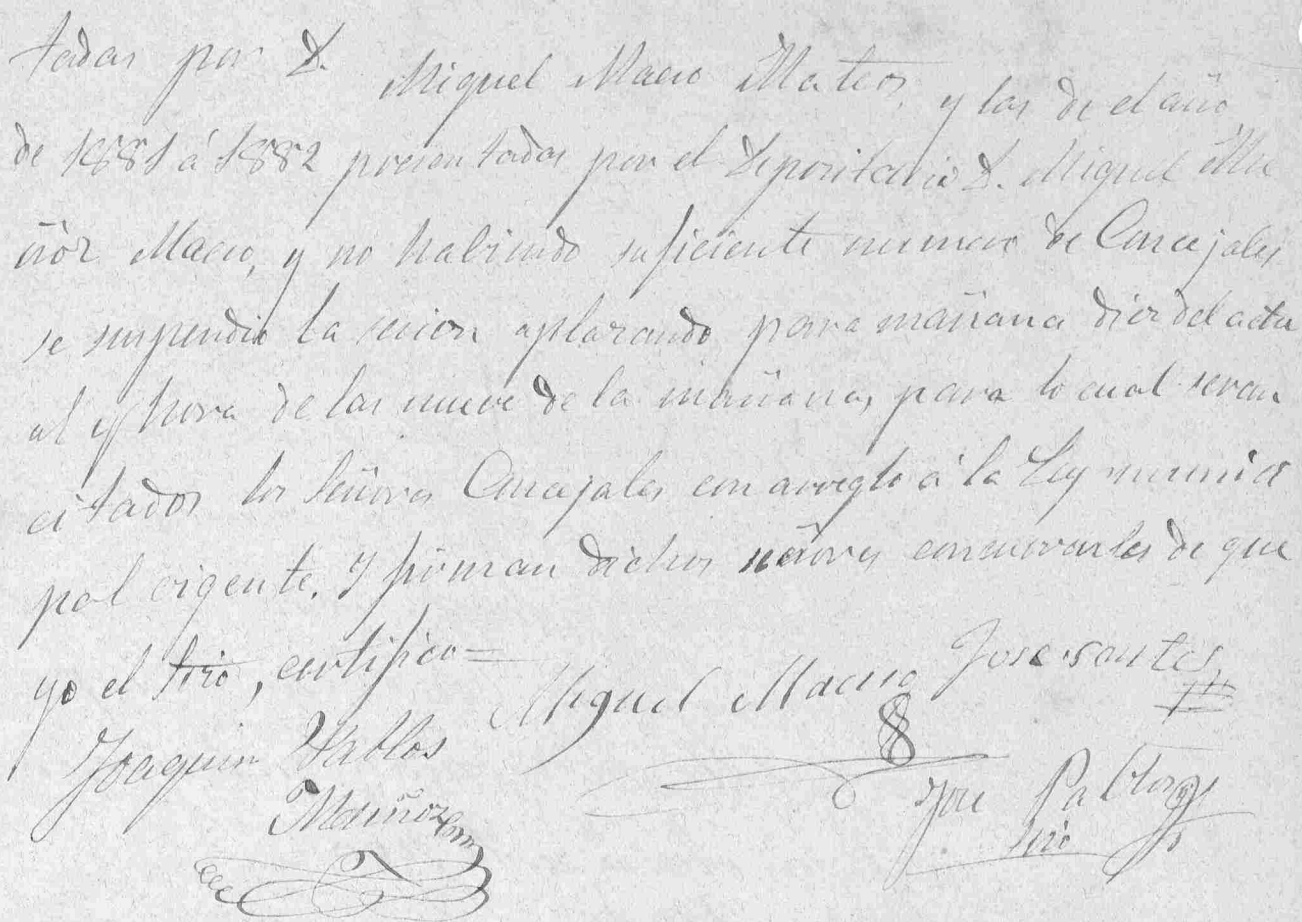 tadas por D. Miguel Macio Mateos, y las de el año
de 1881 á 1882 presentadas por el Depositario D. Miguel Mu
ñoz Macio, y no habiendo suficiente numero de Concejales
se suspendio la secion aplazando para mañana dies del actu
al y hora de las nueve de la mañana, para lo cual seran
citados los Señores Concejales con arreglo á la Ley munici
pal vigente. Y firman dichos señores concurrentes de que
yo el Srio, certifico=
Miguel Macio Jose santos
Joaquin Pablos
Muñoz
Jose Pablos
Srio